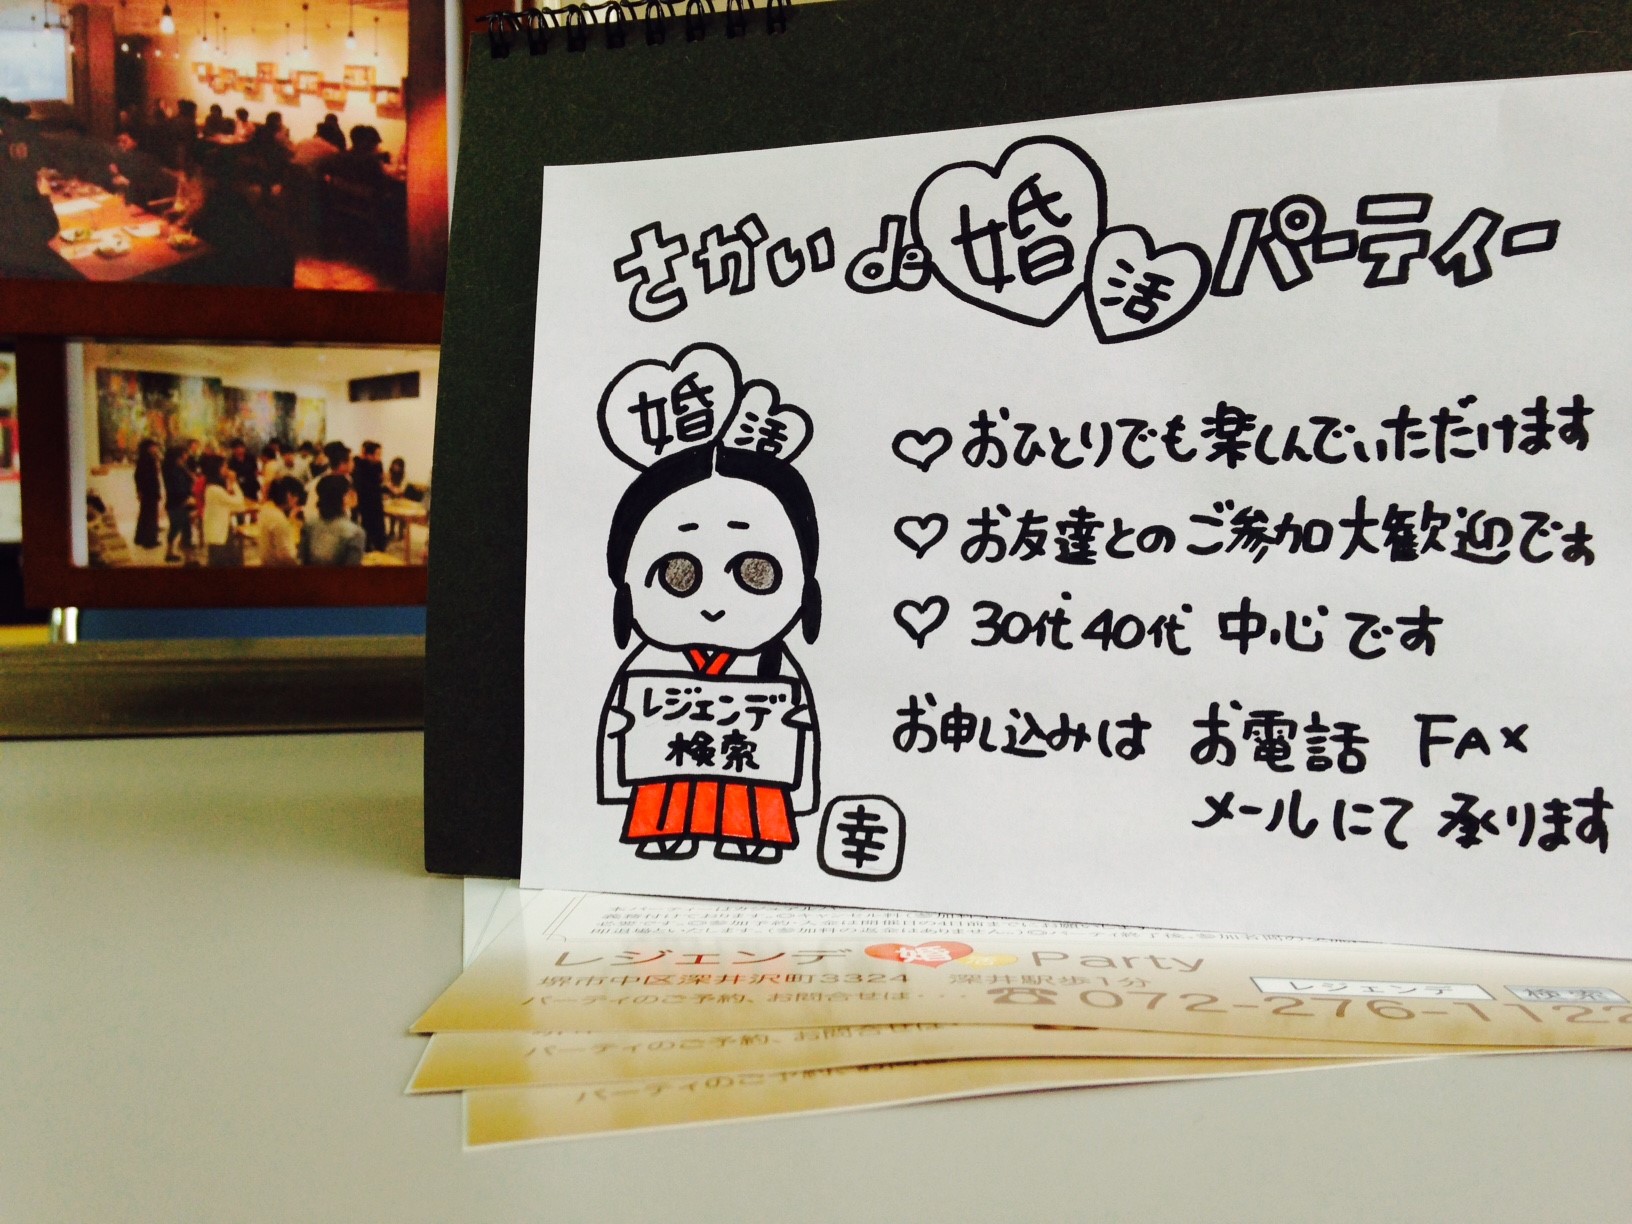 さかい de 婚活パーティー
婚活
♡ おひとりでも楽しんでいただけます
♡ お友達とのご参加大歓迎です
♡ 30代40代 中心です
お申し込みは お電話 FAX
メールにて 承ります
レジェンデ
検索
幸
即退場といたします。(参加料の返金はありません。)
レジェンデ 婚活 Party
堺市中区深井沢町3324 深井駅歩1分
レジェンデ 検索
パーティのご予約、お問合せは・・・ ☎072-276-1122
パーティのご予約、お問合せは・
パーティのご予約、